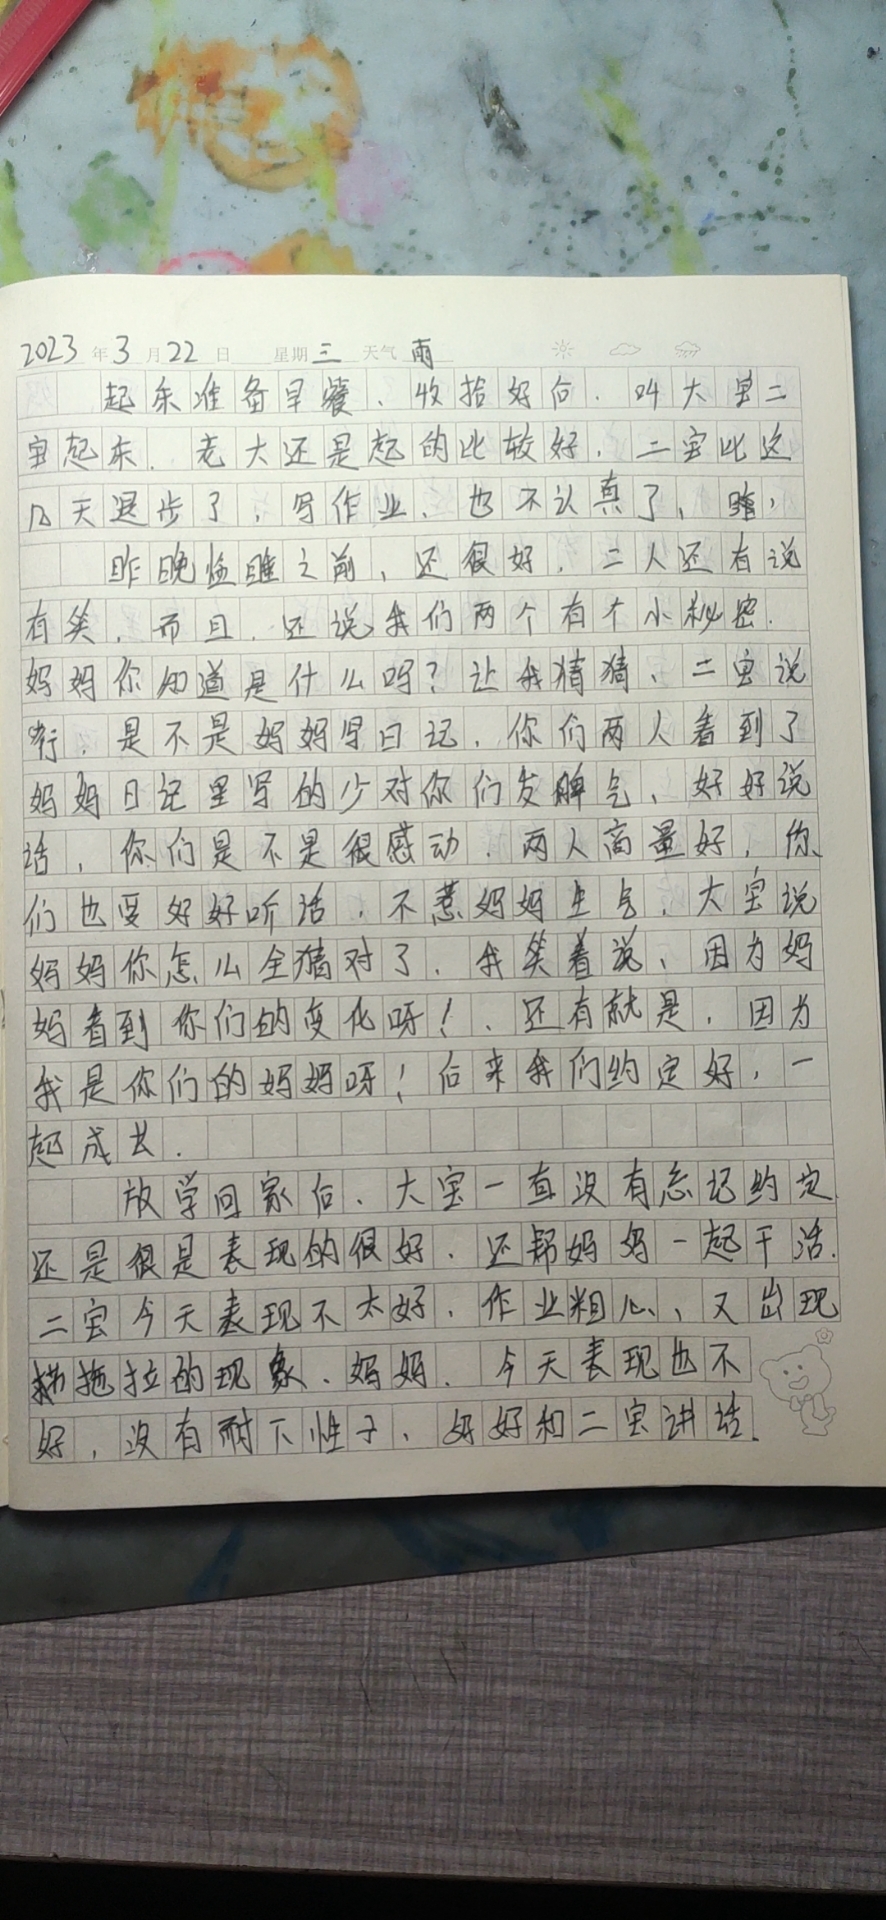 2023年3月22日 星期三 天气雨
起床准备早餐、收拾好后、叫大宝二
宝起床.老大还是起的比较好,二宝比这
几天退步了,写作业、也不认真了、
昨晚临睡之前、还很好,二人还有说
有笑,而且,还说我们两个有个小秘密.
妈妈你知道是什么吗?让我猜猜、二宝说
行.是不是妈妈写日记,你们两人看到了
妈妈日记里写的少对你们发脾气、好好说
话,你们是不是很感动.两人商量好,你
们也要好好听话,不惹妈妈生气,大宝说
妈妈你怎么全猜对了,我笑着说、因为妈
妈看到你们的变化呀!、还有就是,因为
我是你们的妈妈呀!后来我们约定好,一
起成长.
放学回家后、大宝一直没有忘记约定
还是很是表现的很好.还帮妈妈一起干活.
二宝今天表现不太好,作业粗心、又出现
拖拉的现象、妈妈.今天表现也不
好,没有耐下性子、好好和二宝讲话.